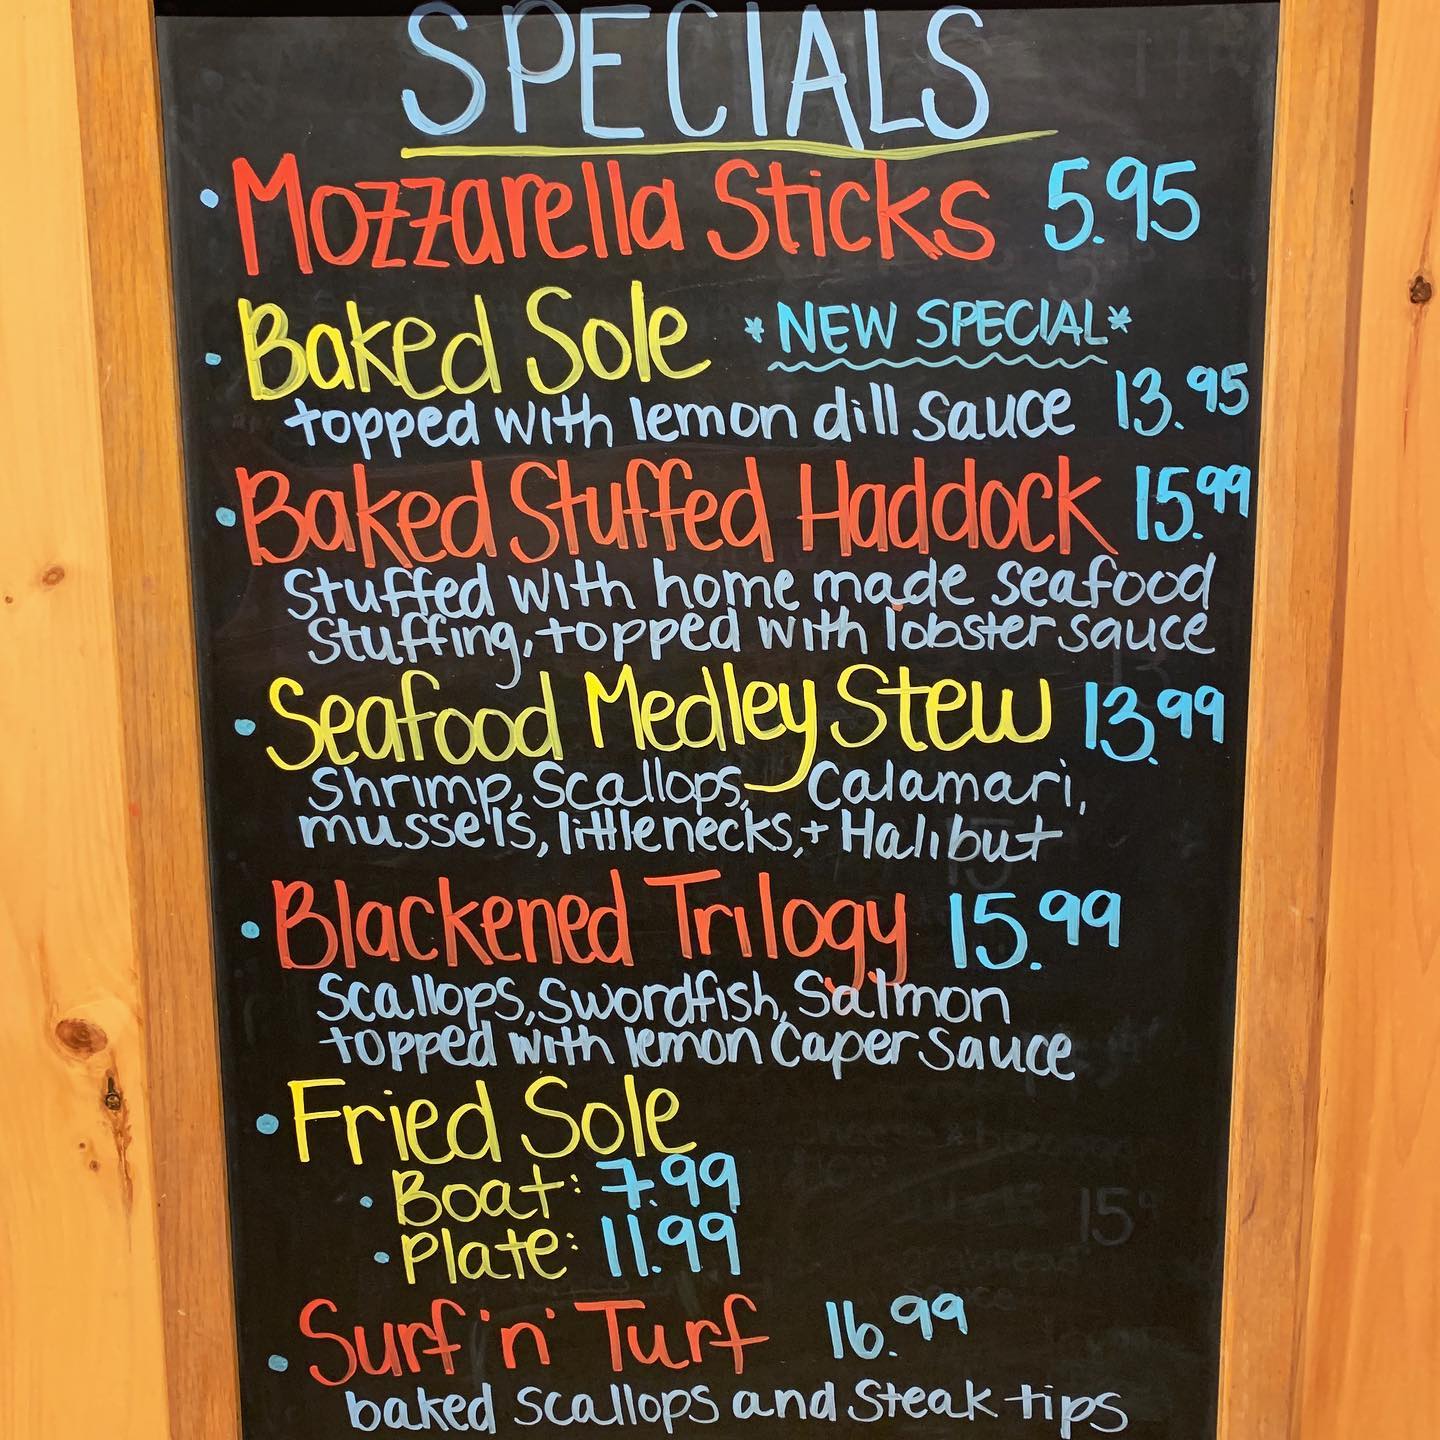 SPECIALS
• Mozzarella Sticks 5.95
• Baked Sole *NEW SPECIAL*
topped with lemon dill sauce 13.95
• Baked Stuffed Haddock 15.99
Stuffed with home made seafood
Stuffing, topped with lobster sauce
• Seafood Medley Stew 13.99
Shrimp, Scallops, Calamari,
mussels, littlenecks, + Halibut
• Blackened Trilogy 15.99
Scallops, Swordfish, Salmon
topped with lemon Caper Sauce
• Fried Sole
• Boat: 7.99
• Plate: 11.99
• Surf 'n' Turf 16.99
baked scallops and Steak tips